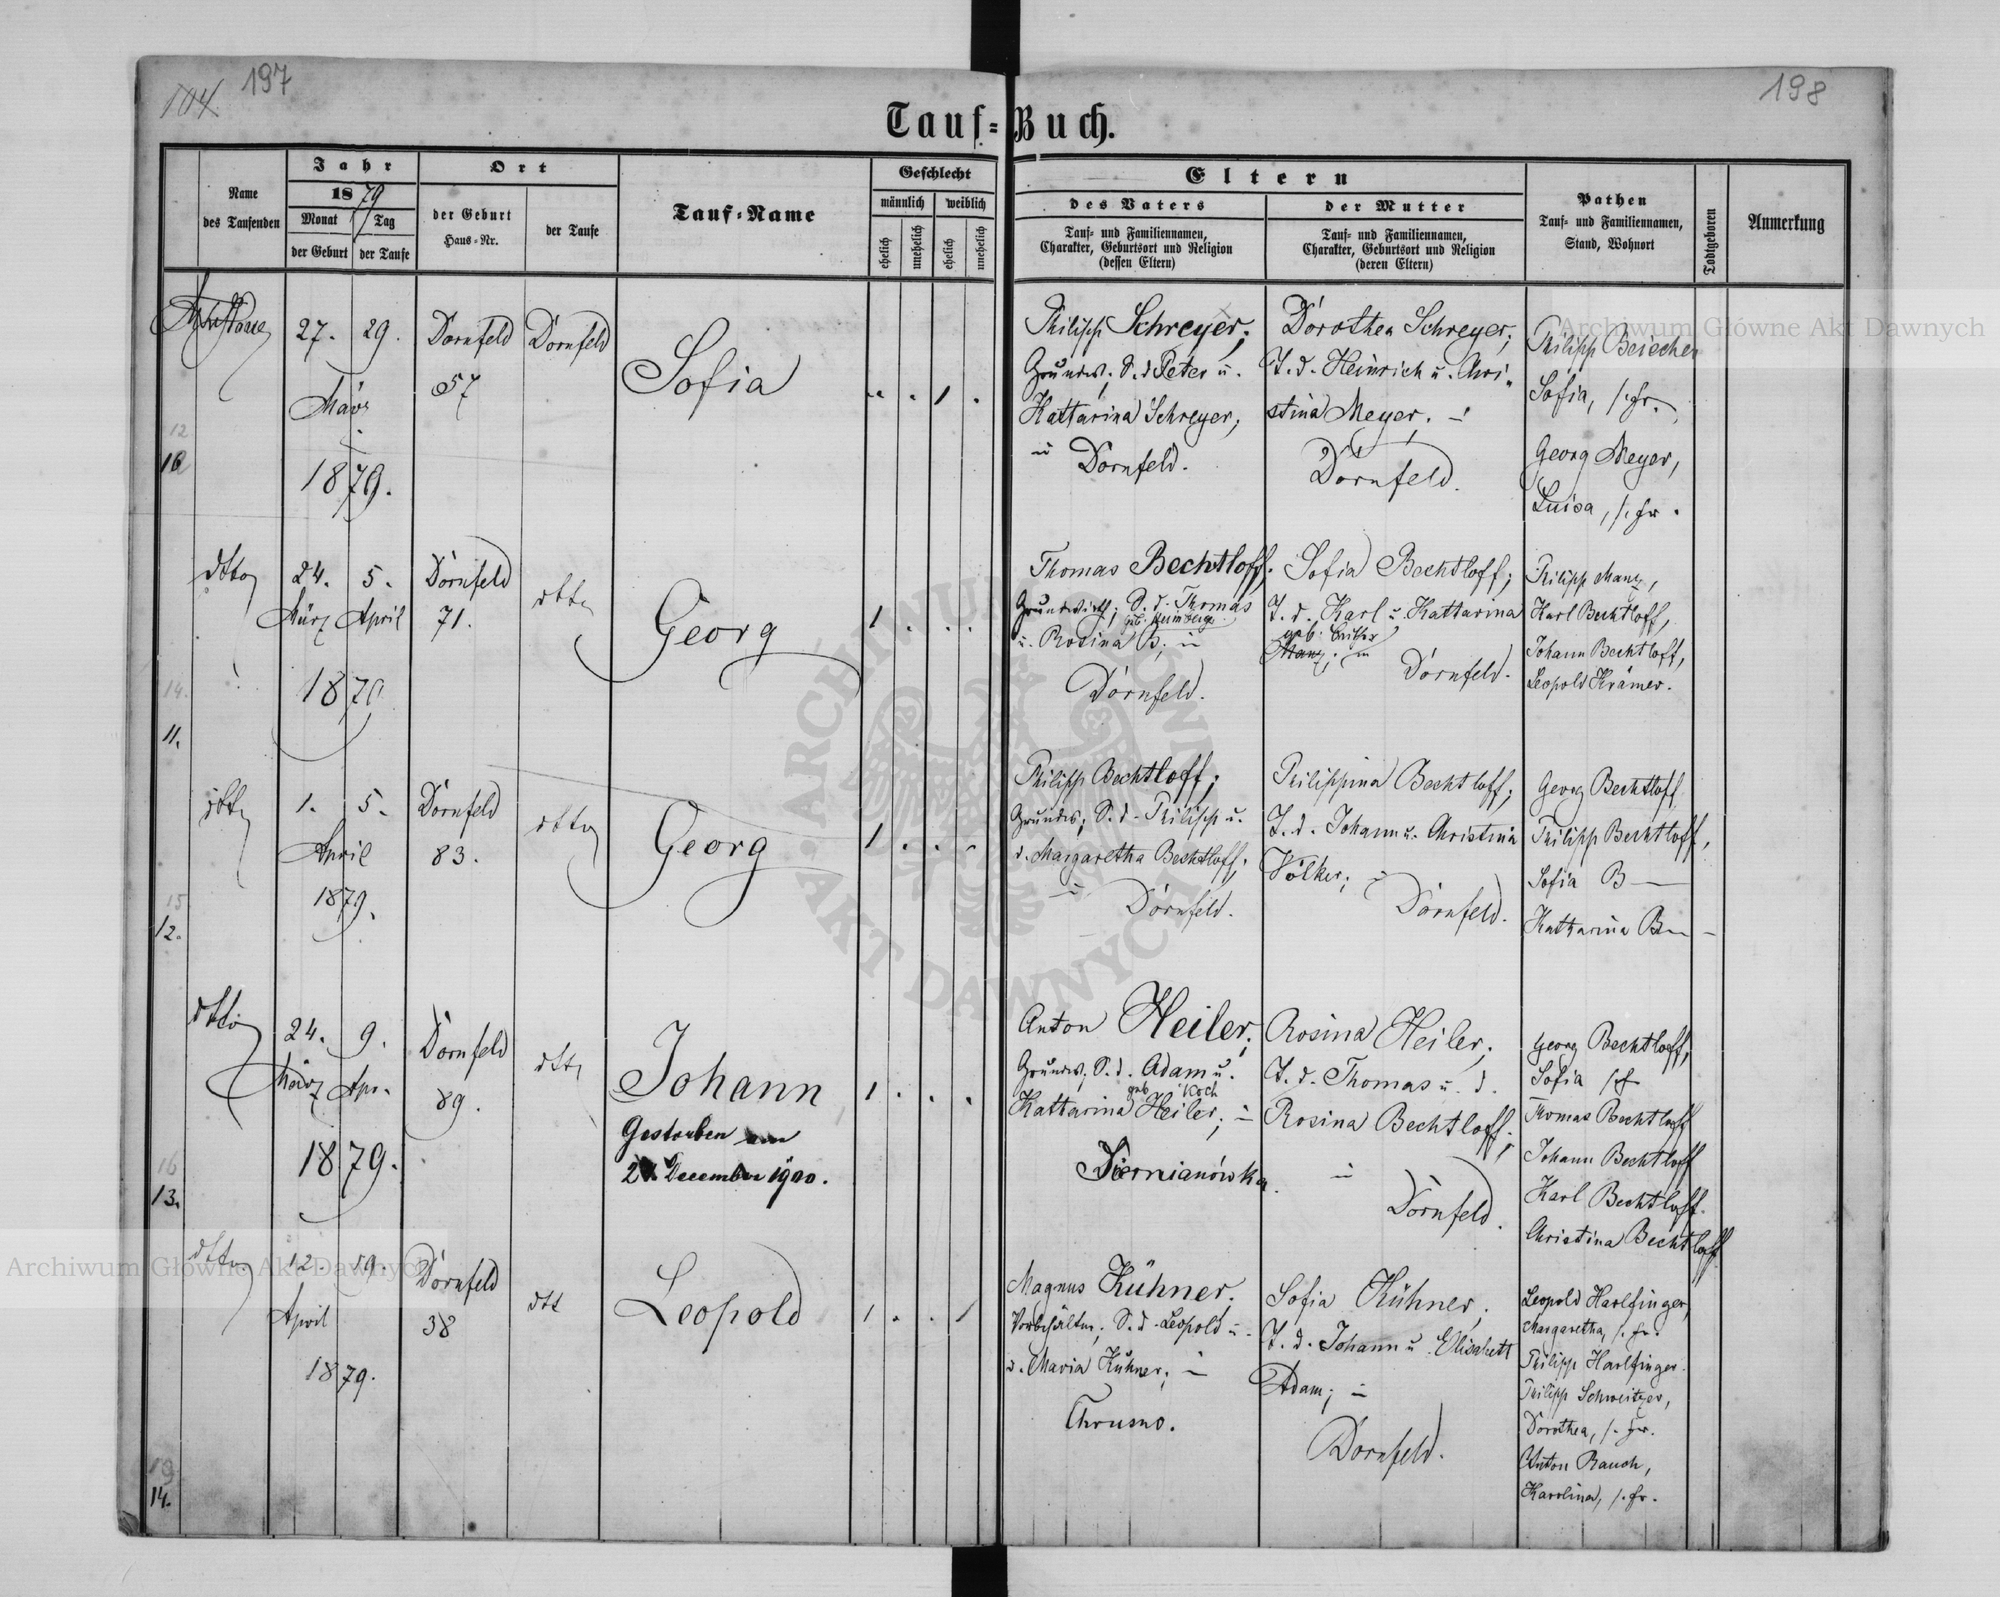 104 197
198
Tauf-Buch.
Name des Taufenden
Jahr 1879
Monat der Geburt
Tag der Taufe
Ort
der Geburt Haus-Nr.
der Taufe
Tauf-Name
Geschlecht
männlich weiblich
ehelich unehelich ehelich unehelich
Eltern
des Vaters
Tauf- und Familiennamen,
Charakter, Geburtsort und Religion
(dessen Eltern)
der Mutter
Tauf- und Familiennamen,
Charakter, Geburtsort und Religion
(deren Eltern)
Pathen
Tauf- und Familiennamen,
Stand, Wohnort
Todtgeboren
Anmerkung
12
10
27. 29.
März
1879.
Dornfeld
57
Dornfeld
Sofia
1
Philipp Schreyer;
Grundw. S. d. Peter u.
Kattarina Schreyer;
in Dornfeld.
Dorothea Schreyer;
T. d. Heinrich u. Chri-
stina Meyer. in
Dornfeld.
Philipp
Sofia, s. fr.
Georg Meyer,
Luisa, s. fr.
14.
11.
dtto
24. 5.
März April
1879
Dornfeld
71.
dtto
Georg
1
Thomas Bechtloff.
Grundwirth; S. d. Thomas
u. Rosina B; in
Dornfeld.
Sofia Bechtloff;
T. d. Karl u. Kattarina
geb.
Manz; in
Dornfeld.
Philipp Manz,
Karl Bechtloff,
Johann Bechtloff,
Leopold Krämer.
15
12.
dtto
1. 5.
April
1879.
Dornfeld
83.
dtto
Georg
1
Philipp Bechtloff;
Grundw; S. d. Philipp u.
d. Margaretha Bechtloff;
in Dornfeld.
Philippina Bechtloff;
T. d. Johann u. Christina
Völker; in
Dornfeld.
Georg Bechtloff
Philipp Bechtloff,
Sofia B—
Katharina B—
16
13.
dtto
24. 9.
März Apr.
1879.
Dornfeld
89.
dtto
Johann
Gestorben am
December 1900.
1
Anton Heiler;
Grundw; S. d. Adam u.
geb. Koch
Kattarina Heiler; in
Rosina Heiler;
T. d. Thomas u. d.
Rosina Bechtloff;
in
Dornfeld.
Georg Bechtloff,
Sofia
Thomas Bechtloff
Johann Bechtloff
Karl Bechtloff.
Christina Bechtloff
19
14.
dtto
12. 19.
April
1879.
Dornfeld
38
dtt
Leopold
1
Magnus Kühner.
S. d. Leopold u.
d. Maria Kühner; in
Chrusno.
Sofia Kühner,
T. d. Johann u. Elisabett
Adam; in
Dornfeld.
Leopold Harlfinger,
Margaretha, s. fr.
Philipp Harlfinger.
Philipp Schweitzer,
Dorothea, s. fr.
Anton Rauch,
Karolina, s. fr.
Archiwum Główne Akt Dawnych
Archiwum Główne Akt Dawnych
ARCHIWUM GŁÓWNE AKT DAWNYCH